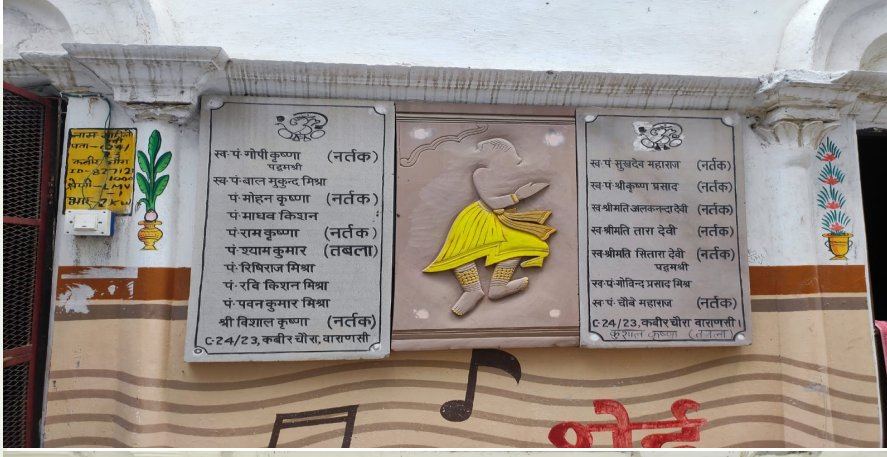 स्व॰ पं॰ गोपी कृष्णा (नर्तक)
पद्मश्री
स्व॰ पं॰ बाल मुकुन्द मिश्रा
पं॰ मोहन कृष्णा (नर्तक)
पं॰ माधव किशन
पं॰ राम कृष्णा (नर्तक)
पं॰ श्याम कुमार (तबला)
पं॰ रिषिराज मिश्रा
पं॰ रवि किशन मिश्रा
पं॰ पवन कुमार मिश्रा
श्री विशाल कृष्णा (नर्तक)
C-24/23, कबीर चौरा, वाराणसी
स्व॰ पं॰ सुखदेव महाराज (नर्तक)
स्व॰ पं॰ श्रीकृष्ण प्रसाद (नर्तक)
स्व॰ श्रीमति अलकनन्दा देवी (नर्तक)
स्व॰ श्रीमति तारा देवी (नर्तक)
स्व॰ श्रीमति सितारा देवी (नर्तक)
पद्मश्री
स्व॰ पं॰ गोविन्द प्रसाद मिश्र
स्व॰ पं॰ चौबे महाराज (नर्तक)
C-24/23, कबीर चौरा वाराणसी।
कुशाल कृष्णा (तबला)
नाम-
कबीर चौरा
LMV